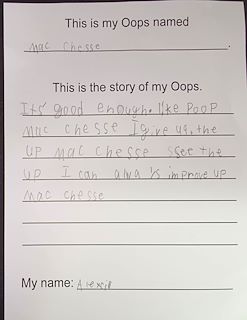 This is my Oops named
mac chesse.
This is the story of my Oops.
It's good enough. like Poop
mac chesse I give up. the
up mac chesse see the
up I can improve up
mac chesse
My name: